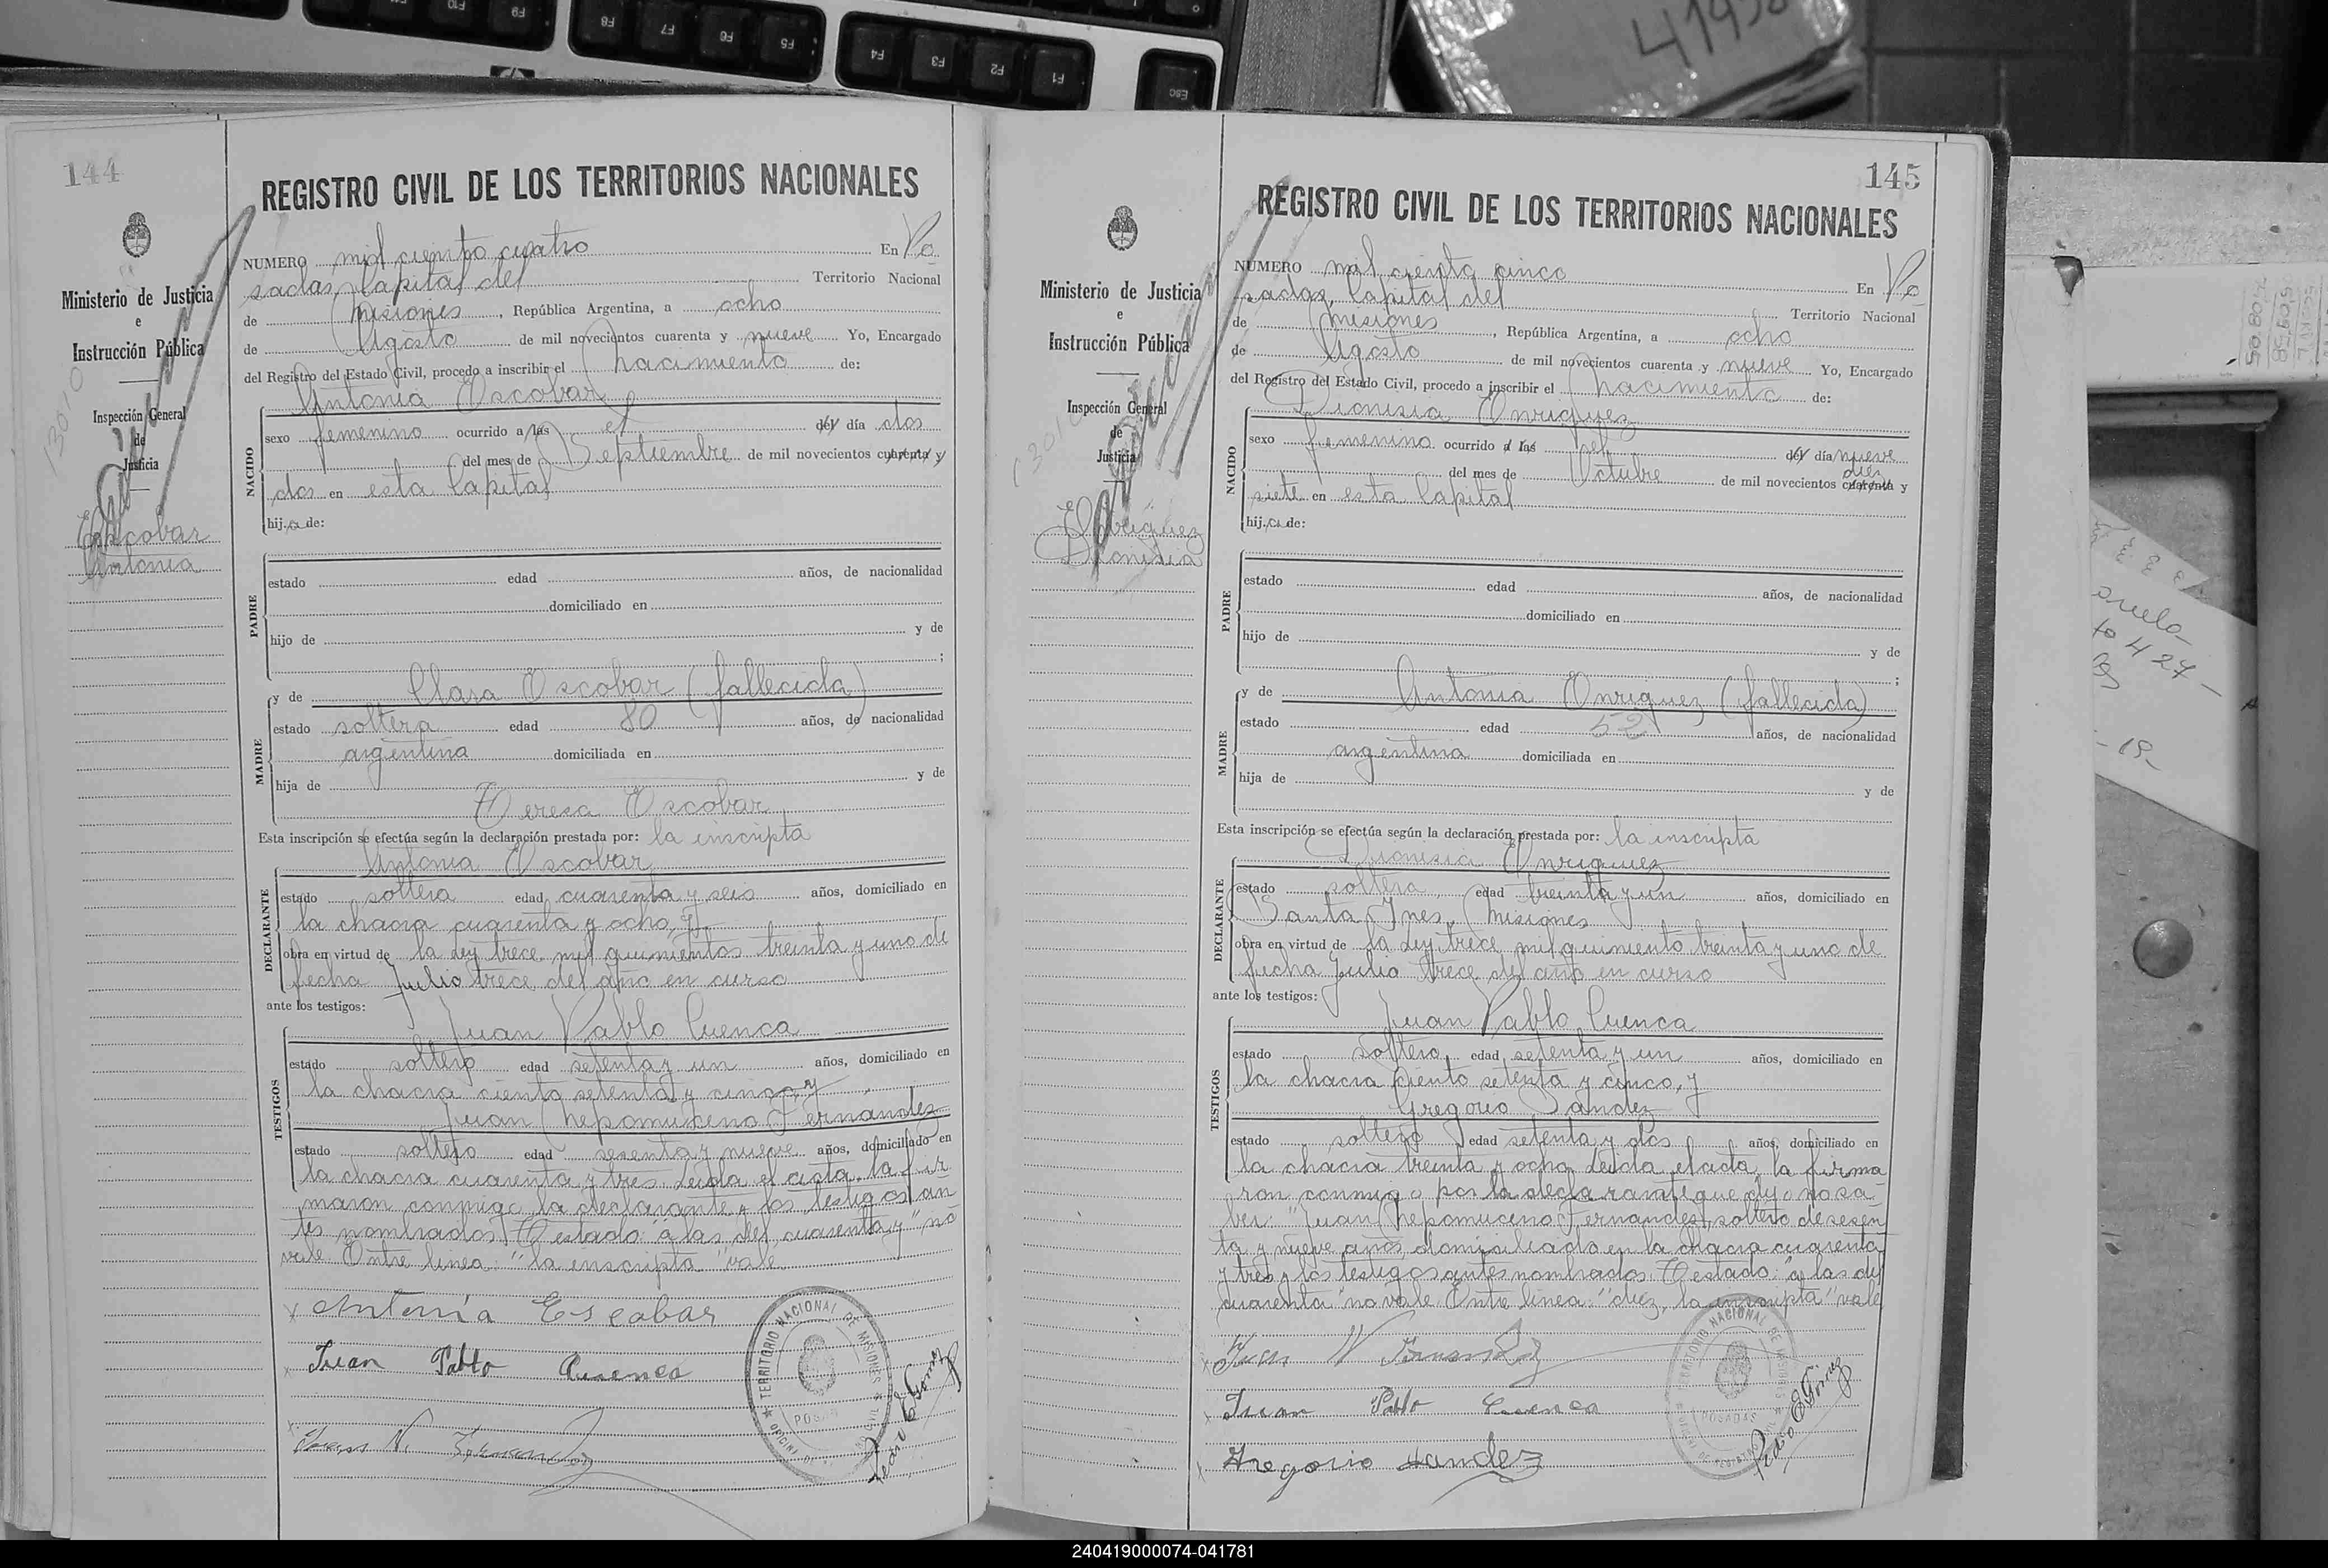 41938
F10
F9
F8
F7
F6
F5
F4
F3
F2
F1
Esc
144
Ministerio de Justicia
e
Instrucción Pública
Inspección General
de
Justicia
Escobar
Antonia
REGISTRO CIVIL DE LOS TERRITORIOS NACIONALES
NUMERO mil ciento cuatro En Po
sadas, Capital del Territorio Nacional
de Misiones, República Argentina, a ocho
de Agosto de mil novecientos cuarenta y nueve Yo, Encargado
del Registro del Estado Civil, procedo a inscribir el nacimiento de:
Antonia Escobar
NACIDO
sexo femenino ocurrido a las el del día dos
del mes de Septiembre de mil novecientos cuarenta y
dos en esta Capital
hija de:
PADRE
estado edad años, de nacionalidad
domiciliado en
hijo de y de
;
MADRE
y de Clara Escobar (fallecida)
estado soltera edad 80 años, de nacionalidad
argentina domiciliada en
hija de y de
Teresa Escobar
Esta inscripción se efectúa según la declaración prestada por: la inscripta
Antonia Escobar
DECLARANTE
estado soltera edad cuarenta y seis años, domiciliado en
la chacra cuarenta y ocho, y
obra en virtud de la Ley trece mil quinientos treinta y uno de
fecha Julio trece del año en curso
ante los testigos:
Juan Pablo Cuenca
TESTIGOS
estado soltero edad setenta y un años, domiciliado en
la chacra ciento setenta y cinco, y
Juan Nepomuceno Fernández
estado soltero edad sesenta y nueve años, domiciliado en
la chacra cuarenta y tres. Leida el acta, la fir
maron conmigo la declarante y los testigos an
tes nombrados. Testado: "a las del cuarenta y" no
vale. Entre linea: "la inscripta" vale
Antonia Escobar
Juan Pablo Cuenca
Juan N. Fernandez
TERRITORIO NACIONAL DE MISIONES
POSADAS
Pedro E. Gomez
145
Ministerio de Justicia
e
Instrucción Pública
Inspección General
de
Justicia
Enriquez
Dionisia
REGISTRO CIVIL DE LOS TERRITORIOS NACIONALES
NUMERO mil ciento cinco En Po
sadas, Capital del Territorio Nacional
de Misiones, República Argentina, a ocho
de Agosto de mil novecientos cuarenta y nueve Yo, Encargado
del Registro del Estado Civil, procedo a inscribir el nacimiento de:
Dionisia Enriquez
NACIDO
sexo femenino ocurrido a las el del día nueve
diez
del mes de Octubre de mil novecientos cuarenta y
siete en esta Capital
hija de:
PADRE
estado edad años, de nacionalidad
domiciliado en
hijo de y de
;
MADRE
y de Antonia Enriquez (fallecida)
estado edad 52 años, de nacionalidad
argentina domiciliada en
hija de y de
Esta inscripción se efectúa según la declaración prestada por: la inscripta
Dionisia Enriquez
DECLARANTE
estado soltera edad treinta y un años, domiciliado en
Santa Ines, Misiones
obra en virtud de la Ley trece mil quiniento treinta y uno de
fecha Julio trece del año en curso
ante los testigos:
Juan Pablo Cuenca
TESTIGOS
estado soltero edad setenta y un años, domiciliado en
la chacra ciento setenta y cinco, y
Gregorio Sandez
estado soltero edad setenta y dos años, domiciliado en
la chacra treinta y ocho. Leida el acta, la firma
ron conmigo por la declarante que dijo no sa-
ber: "Juan Nepomuceno Fernandez, soltero de sesen
ta y nueve años, domiciliado en la chacra cuarenta
y tres y los testigos antes nombrados. Testado: "a las del
cuarenta" no vale. Entre linea: "diez, la inscripta" vale
Juan N Fernandez
Juan Pablo Cuenca
Gregorio Sandez
TERRITORIO NACIONAL DE MISIONES
POSADAS
Pedro E. Gomez
240419000074-041781